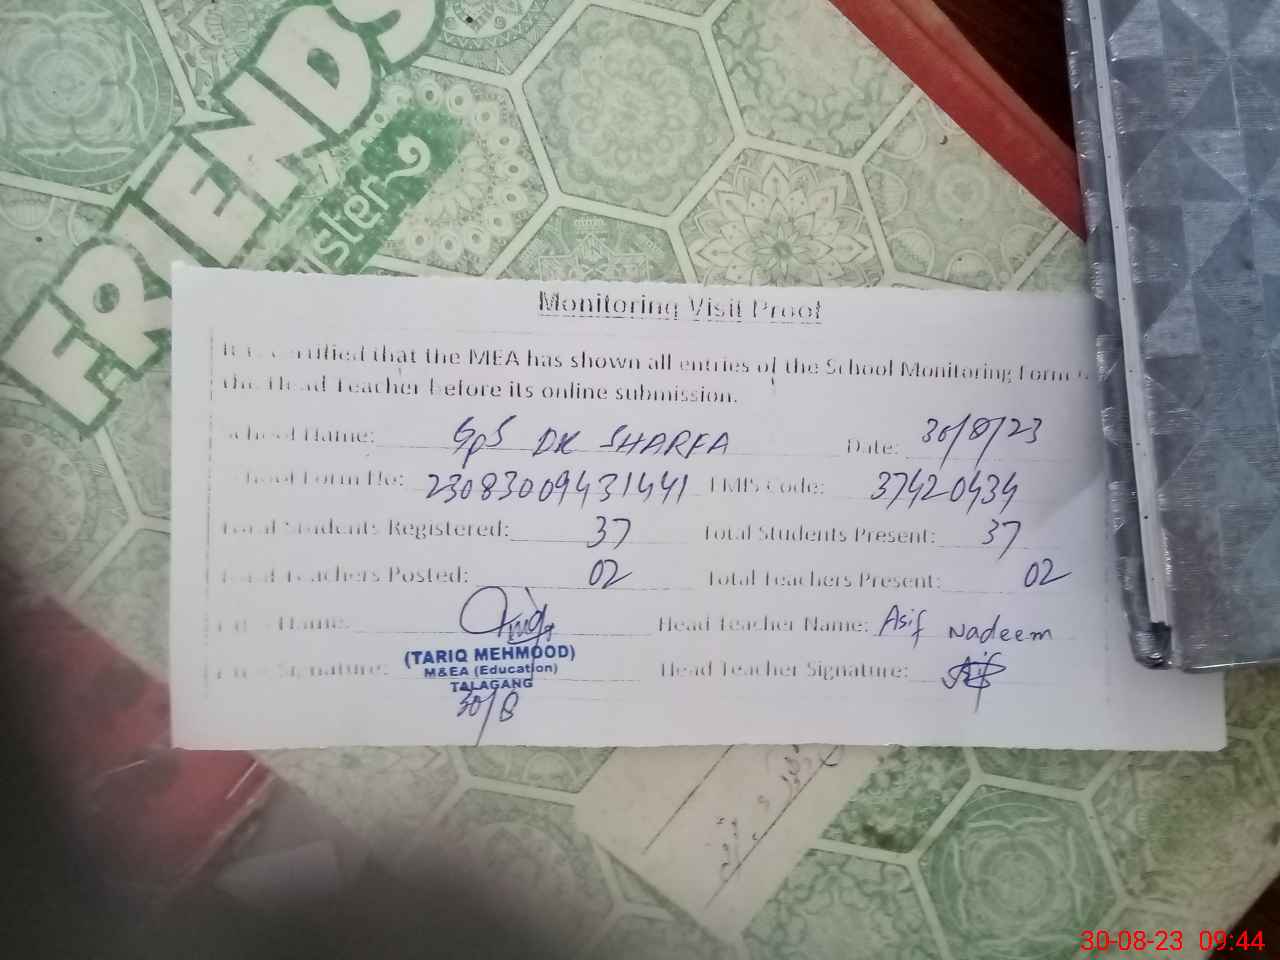 FRIENDS
Monitoring Visit Proof
It is certified that the MEA has shown all entries of the School Monitoring Form
the Head Teacher before its online submission.
School Name: GPS DK SHARFA Date: 30/8/23
School Form No: 23083009431441 EMIS Code: 37420434
Total Students Registered: 37 Total Students Present: 37
Total Teachers Posted: 02 Total Teachers Present: 02
Name: Head Teacher Name: Asif Nadeem
(TARIQ MEHMOOD)
Signature: M&EA (Education) Head Teacher Signature: Asif
TALAGANG
30/8
30-08-23 09:44